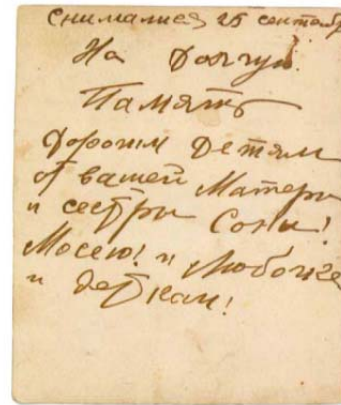 снималися 25 сентябр
На Долгую
Память
Дорогим Детям
от вашей Матери
и сестры Сони!
Мосею! и Любочке
и деткам!